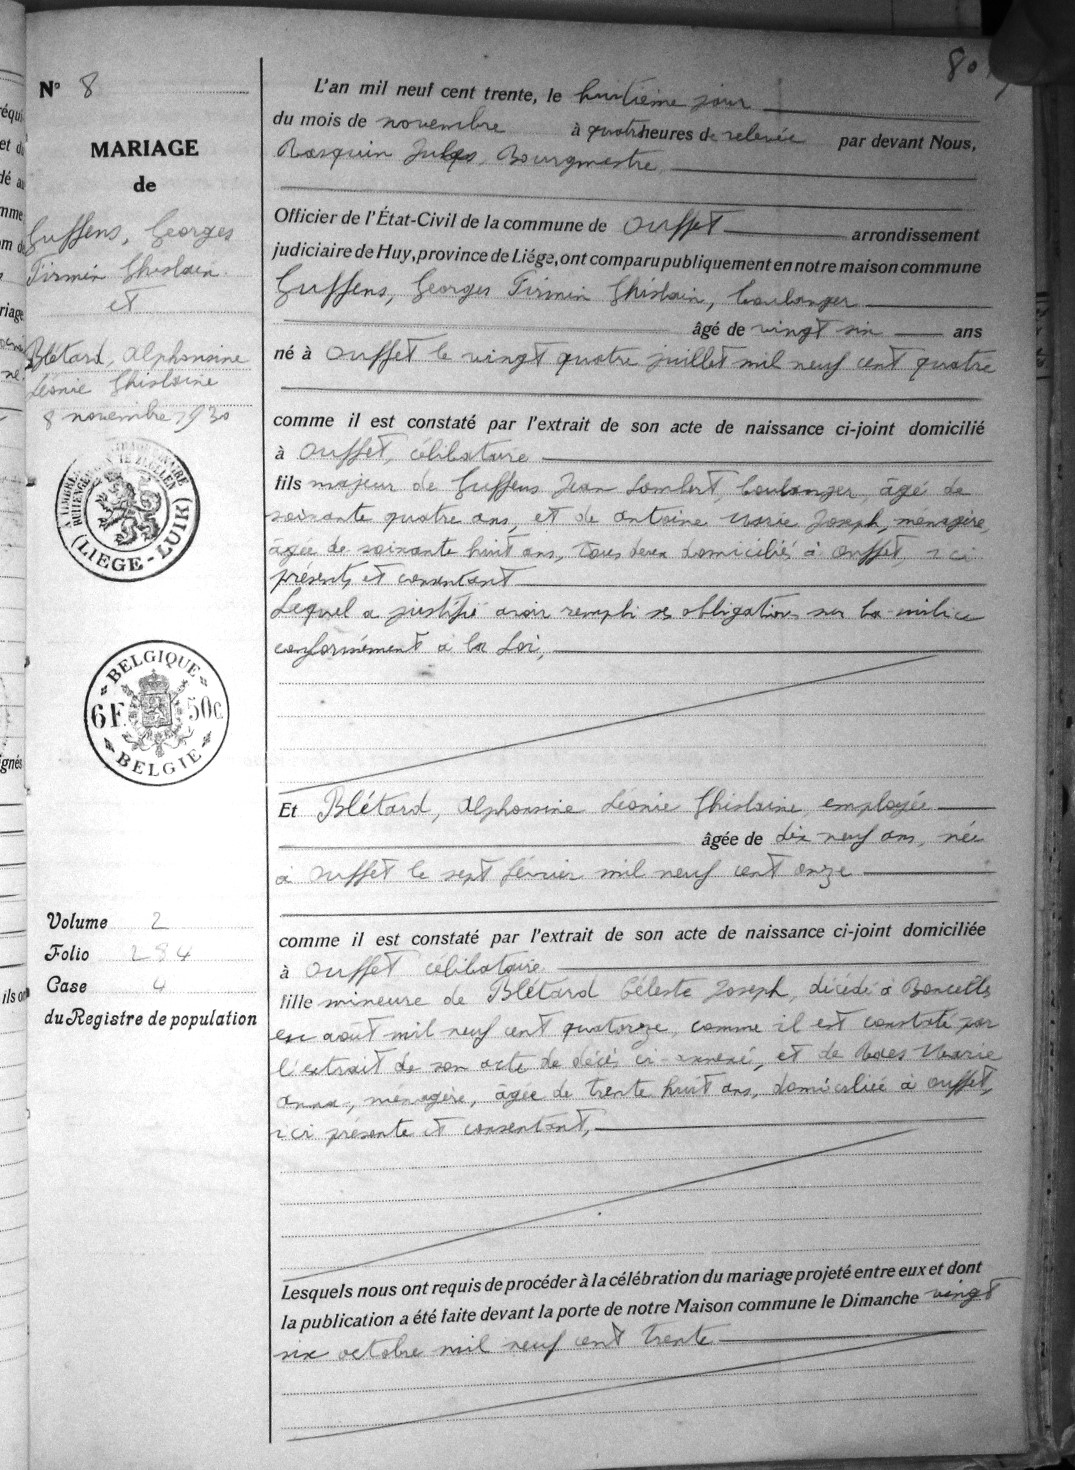 80
N° 8
MARIAGE
de
Guffens, Georges
Firmin Ghislain
et
Blétard, Alphonsine
Léonie Ghislaine
8 novembre 1930
(LIEGE-LUIK)
BELGIQUE
6F. 50c.
BELGIE
Volume 2
Folio 284
Case 4
du Registre de population
L'an mil neuf cent trente, le huitième jour
du mois de novembre à quatre heures de relevée par devant Nous,
Rasquin Jules, Bourgmestre,
Officier de l'État-Civil de la commune de Ouffet arrondissement
judiciaire de Huy, province de Liége, ont comparu publiquement en notre maison commune
Guffens, Georges Firmin Ghislain, boulanger
âgé de vingt six ans
né à Ouffet le vingt quatre juillet mil neuf cent quatre
comme il est constaté par l'extrait de son acte de naissance ci-joint domicilié
à Ouffet, célibataire
fils majeur de Guffens Jean Lambert, boulanger, âgé de
soixante quatre ans, et de Antoine Marie Joseph, ménagère,
âgée de soixante huit ans, tous deux domiciliés à Ouffet, ici
présents et consentant
Lequel a justifié avoir rempli ses obligations sur la milice
conformément à la Loi,
Et Blétard, Alphonsine Léonie Ghislaine, employée
âgée de dix neuf ans, née
à Ouffet le sept février mil neuf cent onze
comme il est constaté par l'extrait de son acte de naissance ci-joint domiciliée
à Ouffet célibataire
fille mineure de Blétard Céleste Joseph, décédé à Boncelles
en août mil neuf cent quatorze, comme il est constaté par
l'extrait de son acte de décès ci-annexé, et de Marie
Anna, ménagère, âgée de trente huit ans, domiciliée à Ouffet,
ici présente et consentant,
Lesquels nous ont requis de procéder à la célébration du mariage projeté entre eux et dont
la publication a été faite devant la porte de notre Maison commune le Dimanche vingt
six octobre mil neuf cent trente